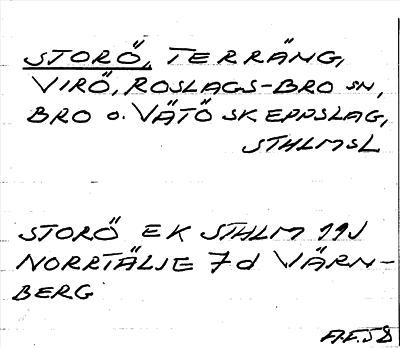 STORÖ, TERRÄNG,
VIRÖ, ROSLAGS-BRO SN,
BRO O. VÄTÖ SKEPPSLAG,
STHLMSL
STORÖ EK STHLM 11J
NORRTÄLJE 7d VÄRN-
BERG
A.F.58